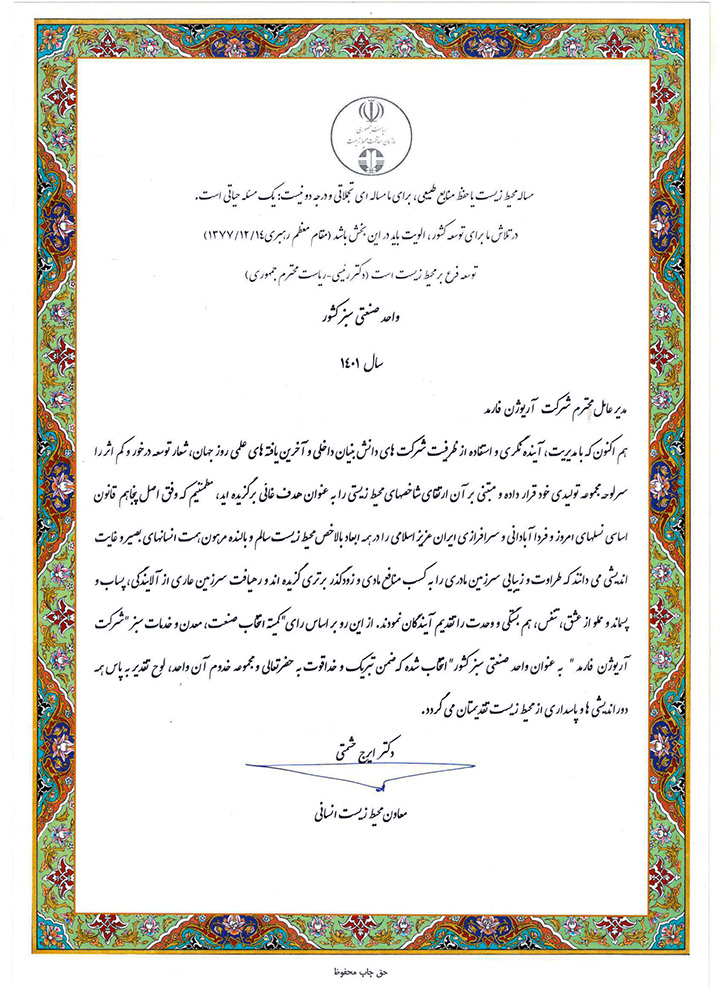 ریاست جمهوری
سازمان حفاظت محیط زیست
مساله محیط زیست یا حفظ منابع طبیعی، برای ما مساله ای تجملاتی و درجه دو نیست: یک مسئله حیاتی است.
در تلاش ما برای توسعه کشور، الویت باید در این بخش باشد (مقام معظم رهبری ۱۳۷۷/۱۲/۱۴)
توسعه فرع بر محیط زیست است (دکتر رئیسی-ریاست محترم جمهوری)
واحد صنعتی سبز کشور
سال ۱۴۰۱
مدیر عامل محترم شرکت آریوژن فارمد
هم اکنون که با مدیریت، آینده نگری و استفاده از ظرفیت شرکت های دانش بنیان داخلی و آخرین یافته های علمی روز جهان، شعار توسعه درخور و کم اثر را
سرلوحه مجموعه تولیدی خود قرار داده و مبتنی بر آن ارتقای شاخصهای محیط زیستی را به عنوان هدف غائی برگزیده اید، مطمئنیم که وفق اصل پنجاهم قانون
اساسی نسلهای امروز و فردا آبادانی و سرافرازی ایران عزیز اسلامی را در همه ابعاد بالاخص محیط زیست سالم و بالنده مرهون همت انسانهای بصیر و غایت
اندیشی می دانند که طراوت و زیبایی سرزمین مادری را به کسب منافع مادی و زودگذر برتری گزیده اند و رهیافت سرزمین عاری از آلایندگی، پساب و
پسماند و مملو از عشق، تنفس، هم بستگی و وحدت را تقدیم آیندگان نمودند. از این رو بر اساس رای "کمیته انتخاب صنعت، معدن و خدمات سبز" شرکت
آریوژن فارمد " به عنوان واحد صنعتی سبز کشور" انتخاب شده که ضمن تبریک و خداقوت به حضرتعالی و مجموعه خدوم آن واحد، لوح تقدیر به پاس همه
دوراندیشی ها و پاسداری از محیط زیست تقدیمتان می گردد.
دکتر ایرج حشمتی
معاون محیط زیست انسانی
حق چاپ محفوظ